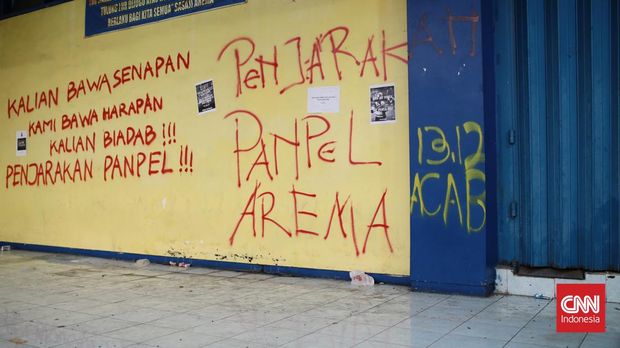 TOLONG
BERLAKU BAGI KITA SEMUA" SASASI AREMA
KALIAN BAWA SENAPAN
KAMI BAWA HARAPAN
KALIAN BIADAB !!!
PENJARAKAN PANPEL !!!
PENJARAKAH
PANPEL
AREMA
13.12
ACAB
CNN
Indonesia